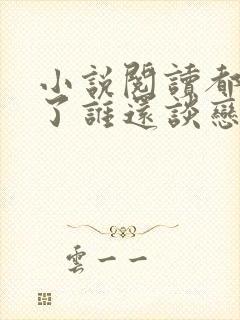 小説閱讀都
了誰還談戀
雲一一